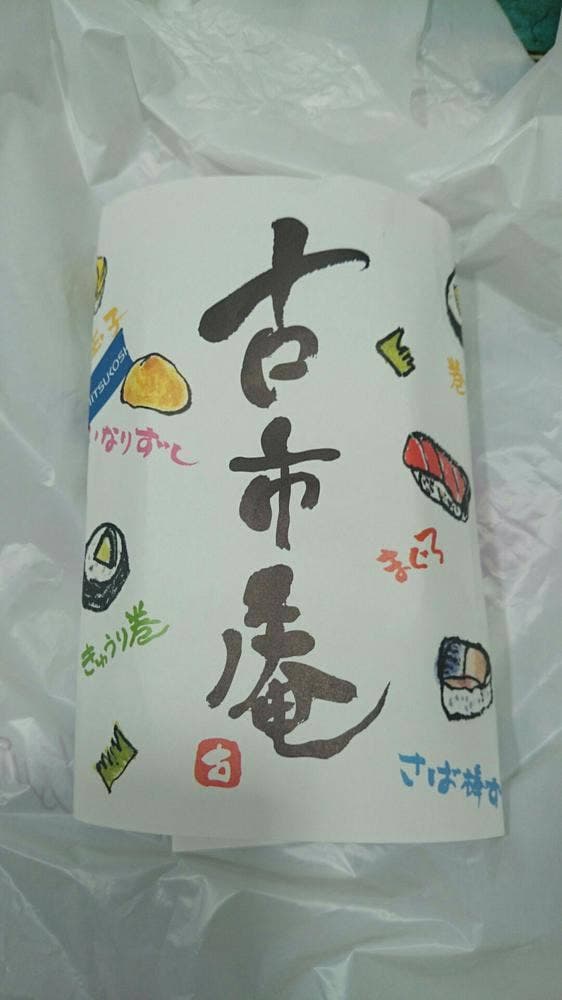 古市庵
子
ITSUKOSHI
いなりずし
きゅうり巻
古
巻
まぐろ
さば棒す